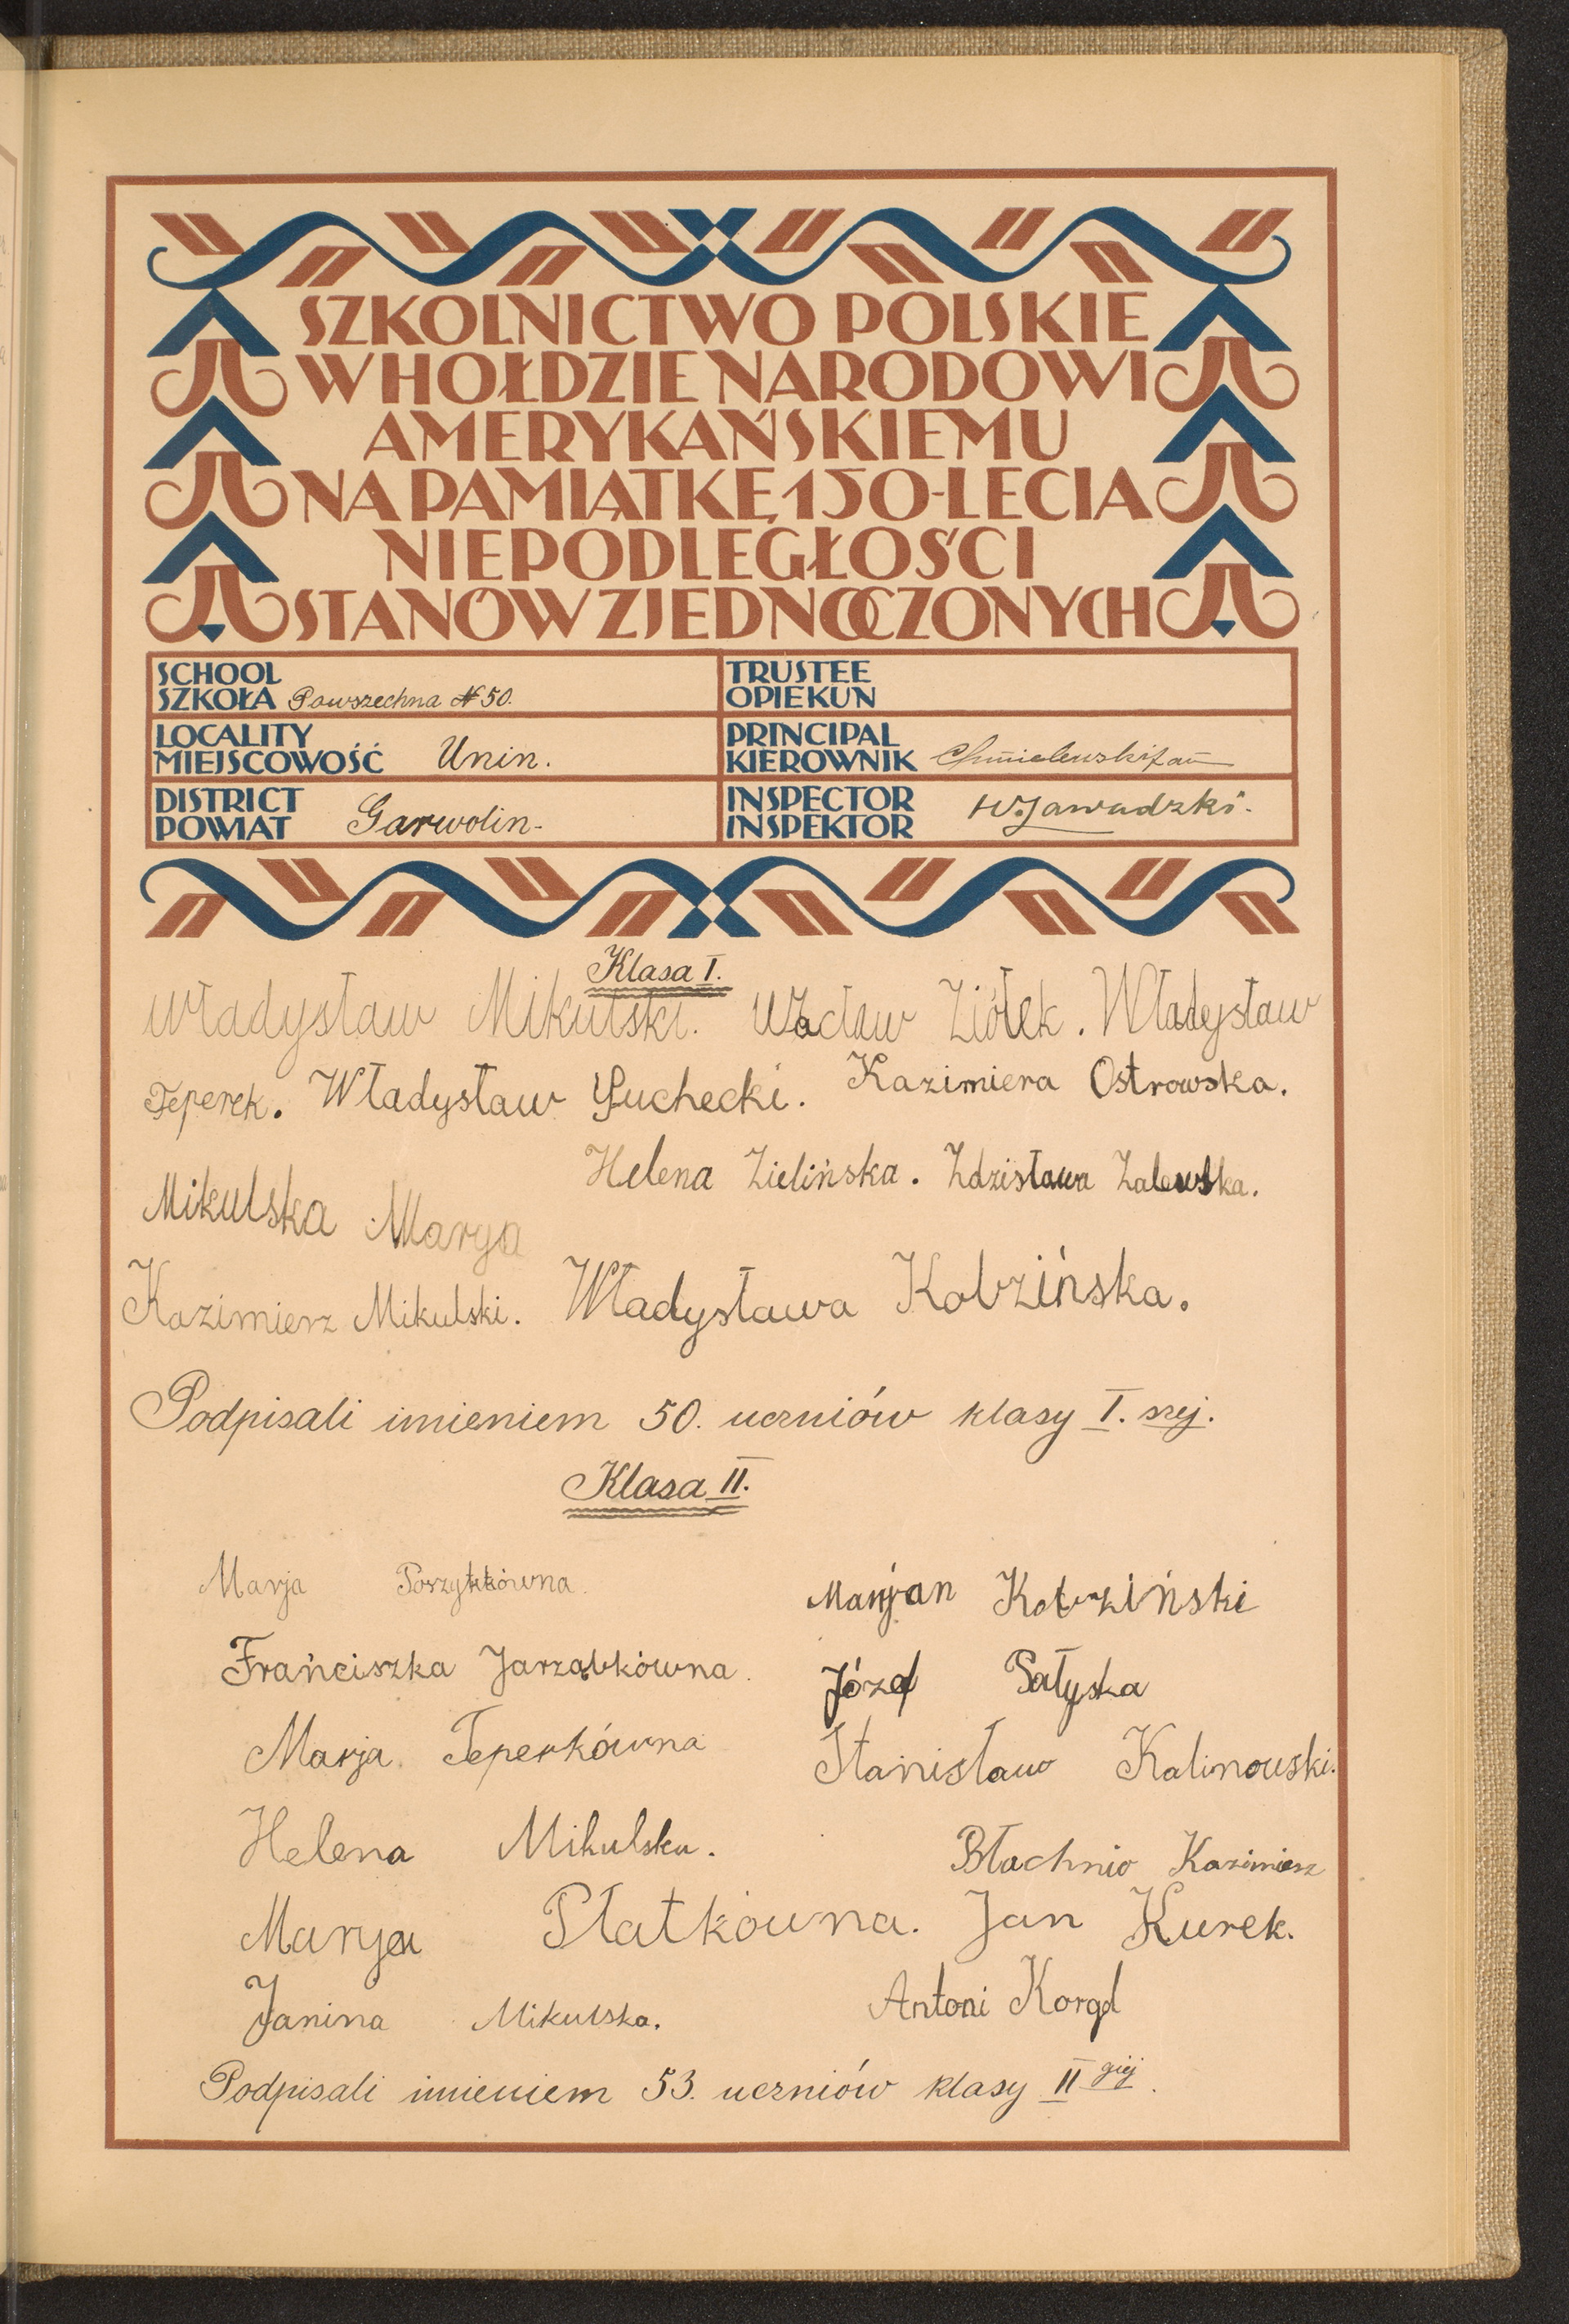 SZKOLNICTWO POLSKIE
W HOŁDZIE NARODOWI
AMERYKAŃSKIEMU
NA PAMIĄTKĘ 150-LECIA
NIEPODLEGŁOŚCI
STANÓW ZJEDNOCZONYCH
SCHOOL
SZKOŁA Powszechna № 50.
TRUSTEE
OPIEKUN
LOCALITY
MIEJSCOWOŚĆ Unin.
PRINCIPAL
KIEROWNIK Chmielewski Jan
DISTRICT
POWIAT Garwolin-
INSPECTOR
INSPEKTOR W. Zawadzki.
Klasa I.
Władysław Mikulski. Wacław Ziółek. Władysław
Teperek. Władysław Suchecki. Kazimiera Ostrowska.
Helena Zielińska. Zdzisława Zalewska.
Mikulska Marya
Kazimierz Mikulski. Władysława Kobzińska.
Podpisali imieniem 50. uczniów klasy I. szej.
Klasa II.
Marja Poszytkówna. Marjan Kobziński
Frańciszka Jarząbkówna. Józef Pałyska
Marja Teperkówna Stanisław Kalinowski.
Helena Mikulska. Błachnio Kazimierz
Marya Płatkówna. Jan Kurek.
Janina Mikulska. Antoni
Podpisali imieniem 53. uczniów klasy II giej.